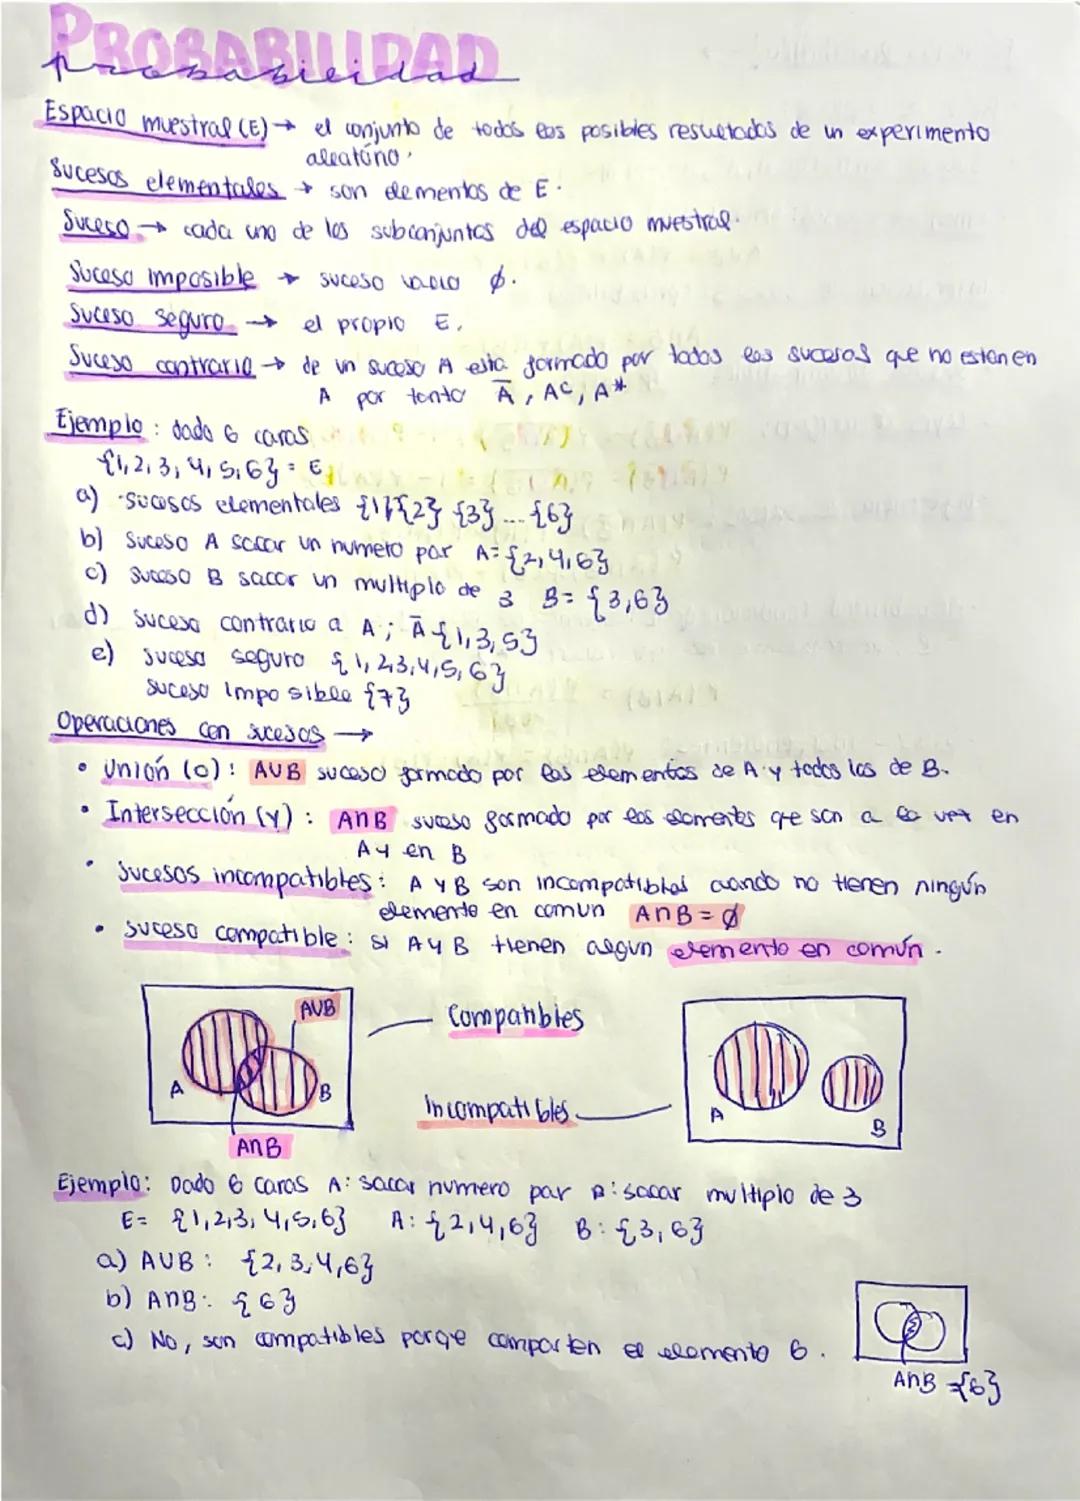 PROBABILIDAD
probabilidad
Espacio muestral (E) → el conjunto de todos los posibles resultados de un experimento
aleatorio.
Sucesos elementales → son elementos de E.
Suceso → cada uno de los subconjuntos del espacio muestral.
Suceso imposible → suceso vacio ∅.
Suceso seguro → el propio E.
Suceso contrario → de un suceso A esta formado por todos los sucesos que no estan en
A por tanto Ā, Aᶜ, A*
Ejemplo: dado 6 caras
{1,2,3,4,5,6} = E
a) sucesos elementales {1}{2} {3} ... {6}
b) Suceso A sacar un numero par A={2,4,6}
c) Suceso B sacar un multiplo de 3 B= {3,6}
d) Suceso contrario a A; Ā {1,3,5}
e) suceso seguro {1,2,3,4,5,6}
suceso imposible {7}
Operaciones con sucesos →
• Unión (o): AUB suceso formado por los elementos de A y todos los de B.
• Intersección (y): A∩B suceso formado por los elementos que son a la vez en
A y en B
• Sucesos incompatibles: A y B son incompatibles cuando no tienen ningún
elemento en comun A∩B = ∅
• suceso compatible: si A y B tienen algun elemento en común.
AUB
Compatibles
A
B
Incompatibles
A
B
A∩B
Ejemplo: Dado 6 caras A: sacar numero par B: sacar multiplo de 3
E= {1,2,3,4,5,6} A: {2,4,6} B: {3,6}
a) AUB: {2,3,4,6}
b) A∩B: {6}
c) No, son compatibles porqe comparten el elemento 6.
A∩B ={6}